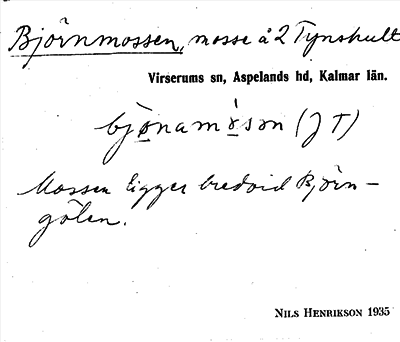 Björnmossen, mosse å 2 Tynshult
Virserums sn, Aspelands hd, Kalmar län.
bjönamòsən (J T)
Mossen ligger bredvid Björn-
gölen.
NILS HENRIKSON 1935